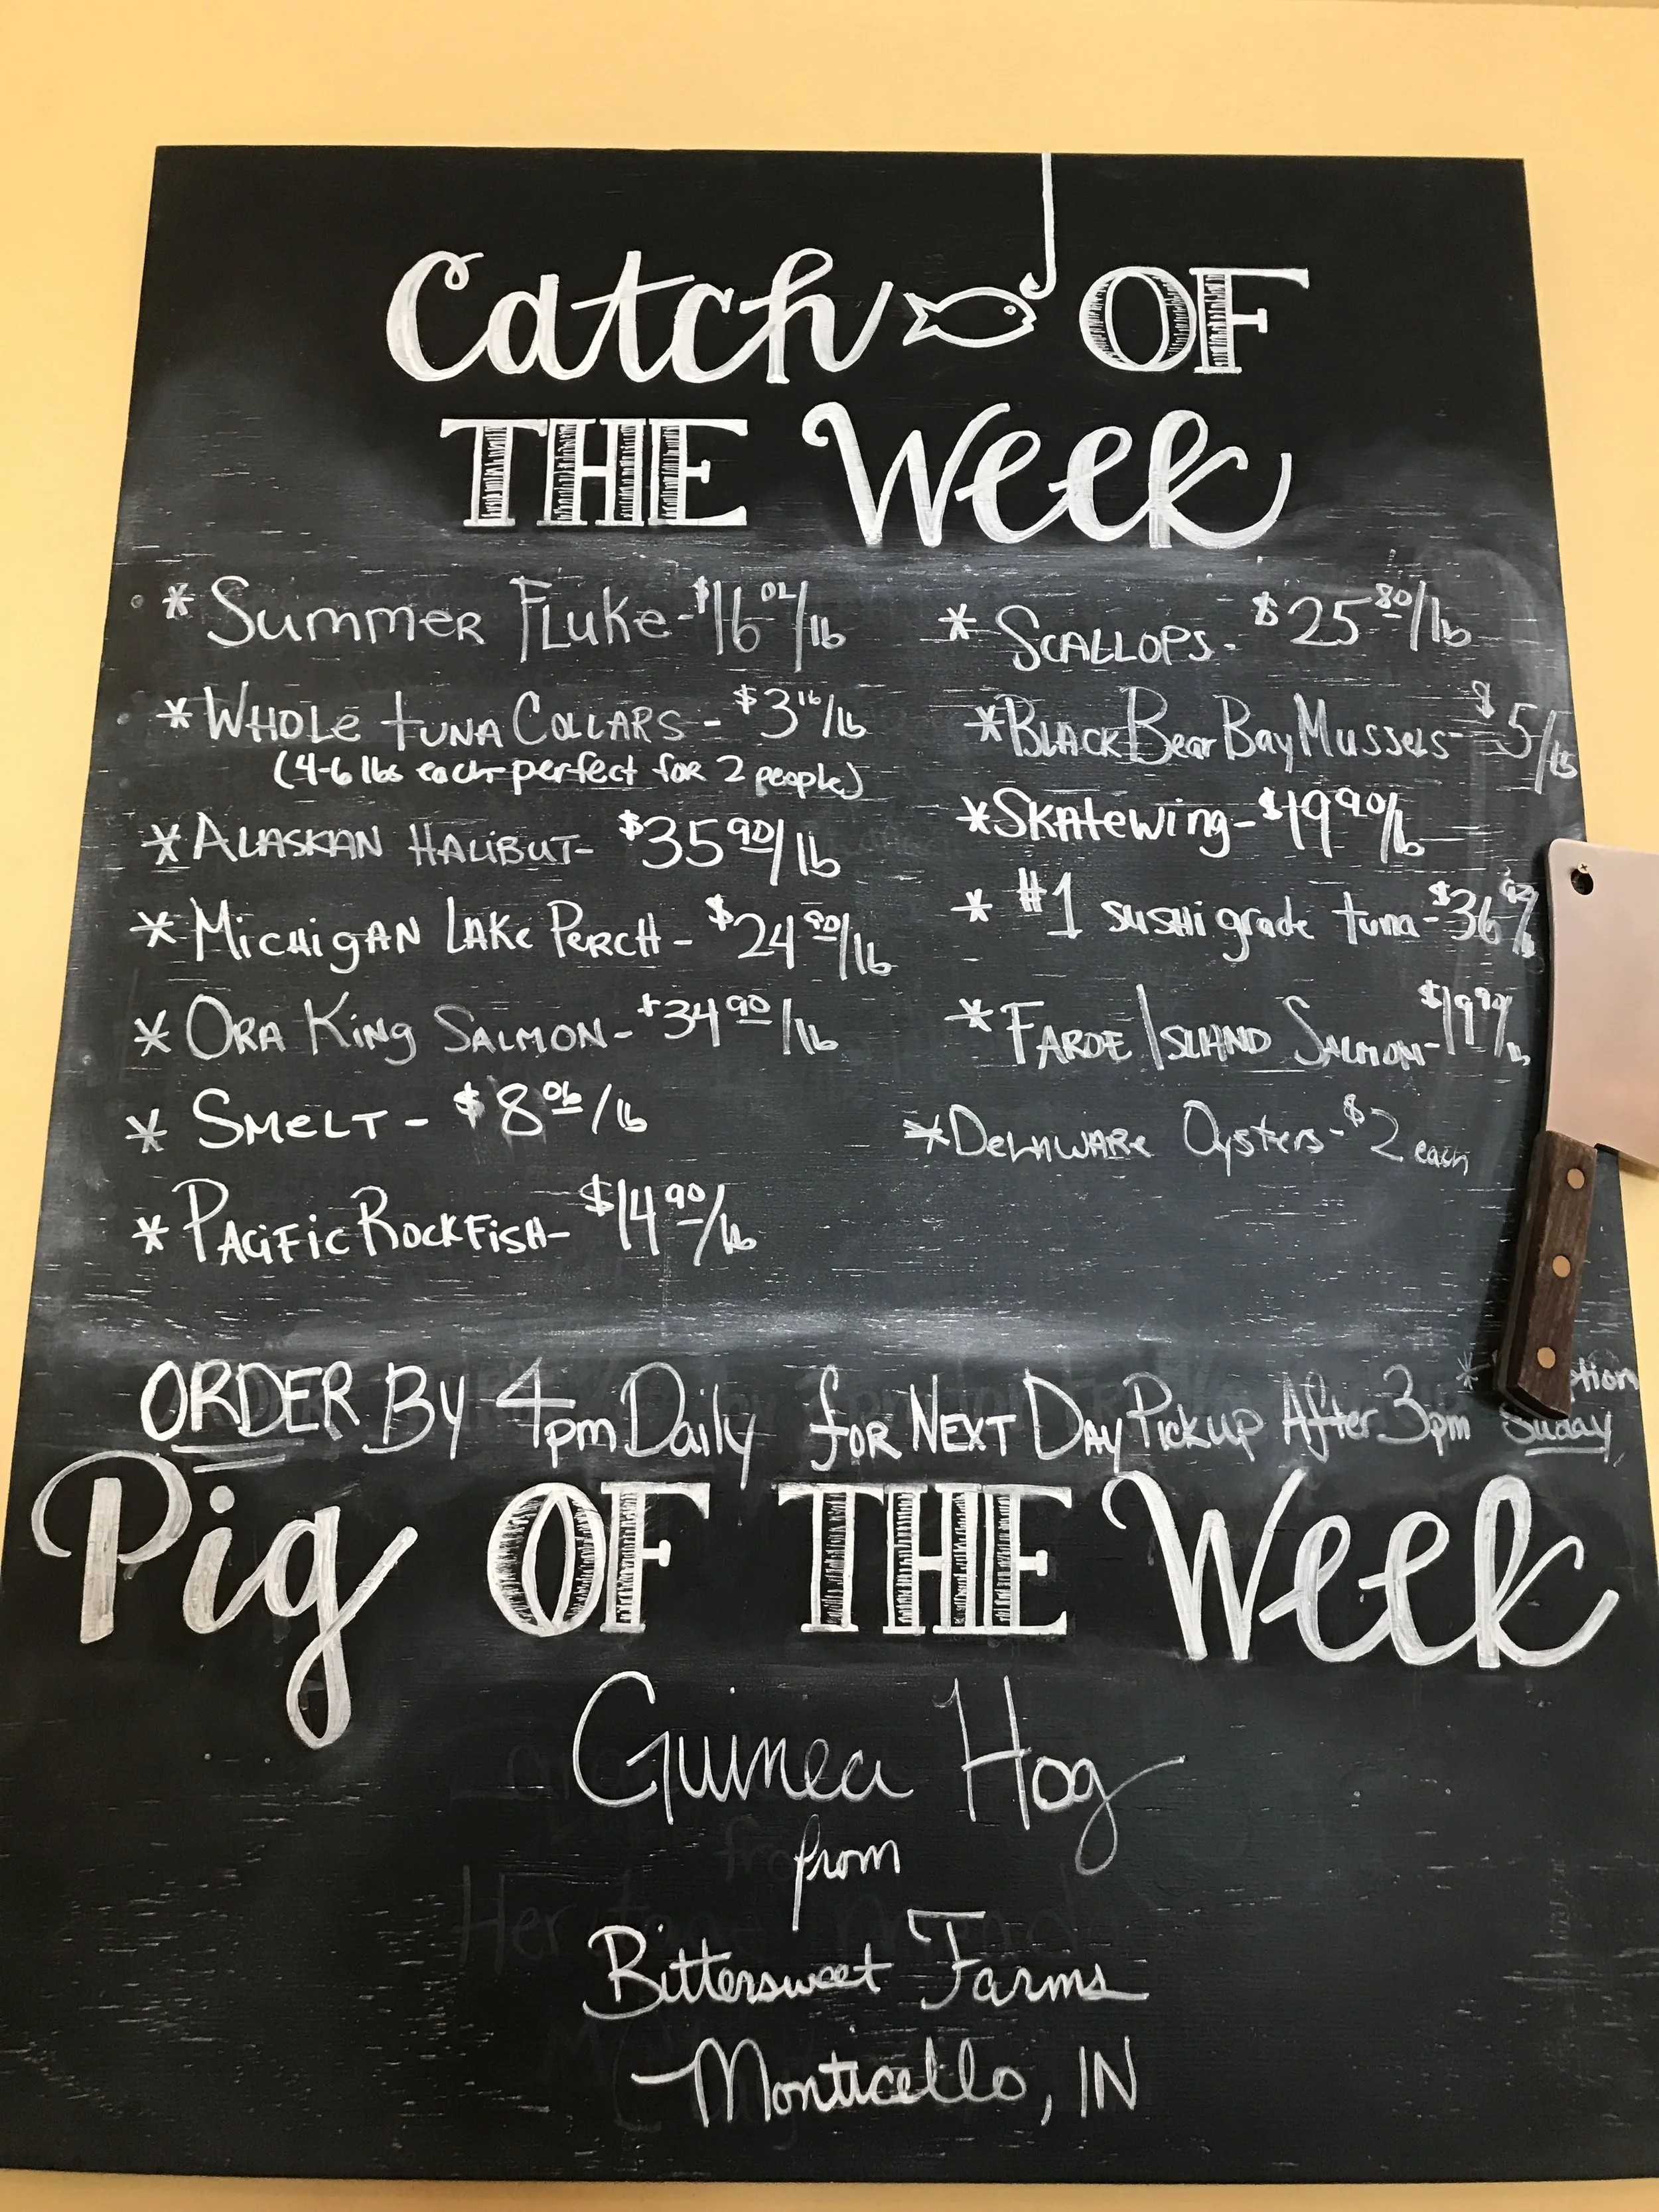 Catch OF
THE Week
* Summer Fluke - $16 02/lb
* Whole Tuna Collars - $3 16/lb
(4-6 lbs each-perfect for 2 people)
* Alaskan Halibut - $35 90/lb
* Michigan Lake Perch - $24 90/lb
* Ora King Salmon - $34 90/lb
* Smelt - $8 06/lb
* Pacific Rockfish - $14 90/lb
* Scallops - $25 80/lb
* Black Bear Bay Mussels - $5/lb
* Skatewing - $19 90/lb
* #1 sushi grade tuna - $36
* Faroe Island Salmon - $19 90/lb
* Delaware Oysters - $2 each
ORDER By 4pm Daily for Next Day Pickup After 3pm
Suday
Pig OF THE Week
Guinea Hog
from
Bittersweet Farms
Monticello, IN